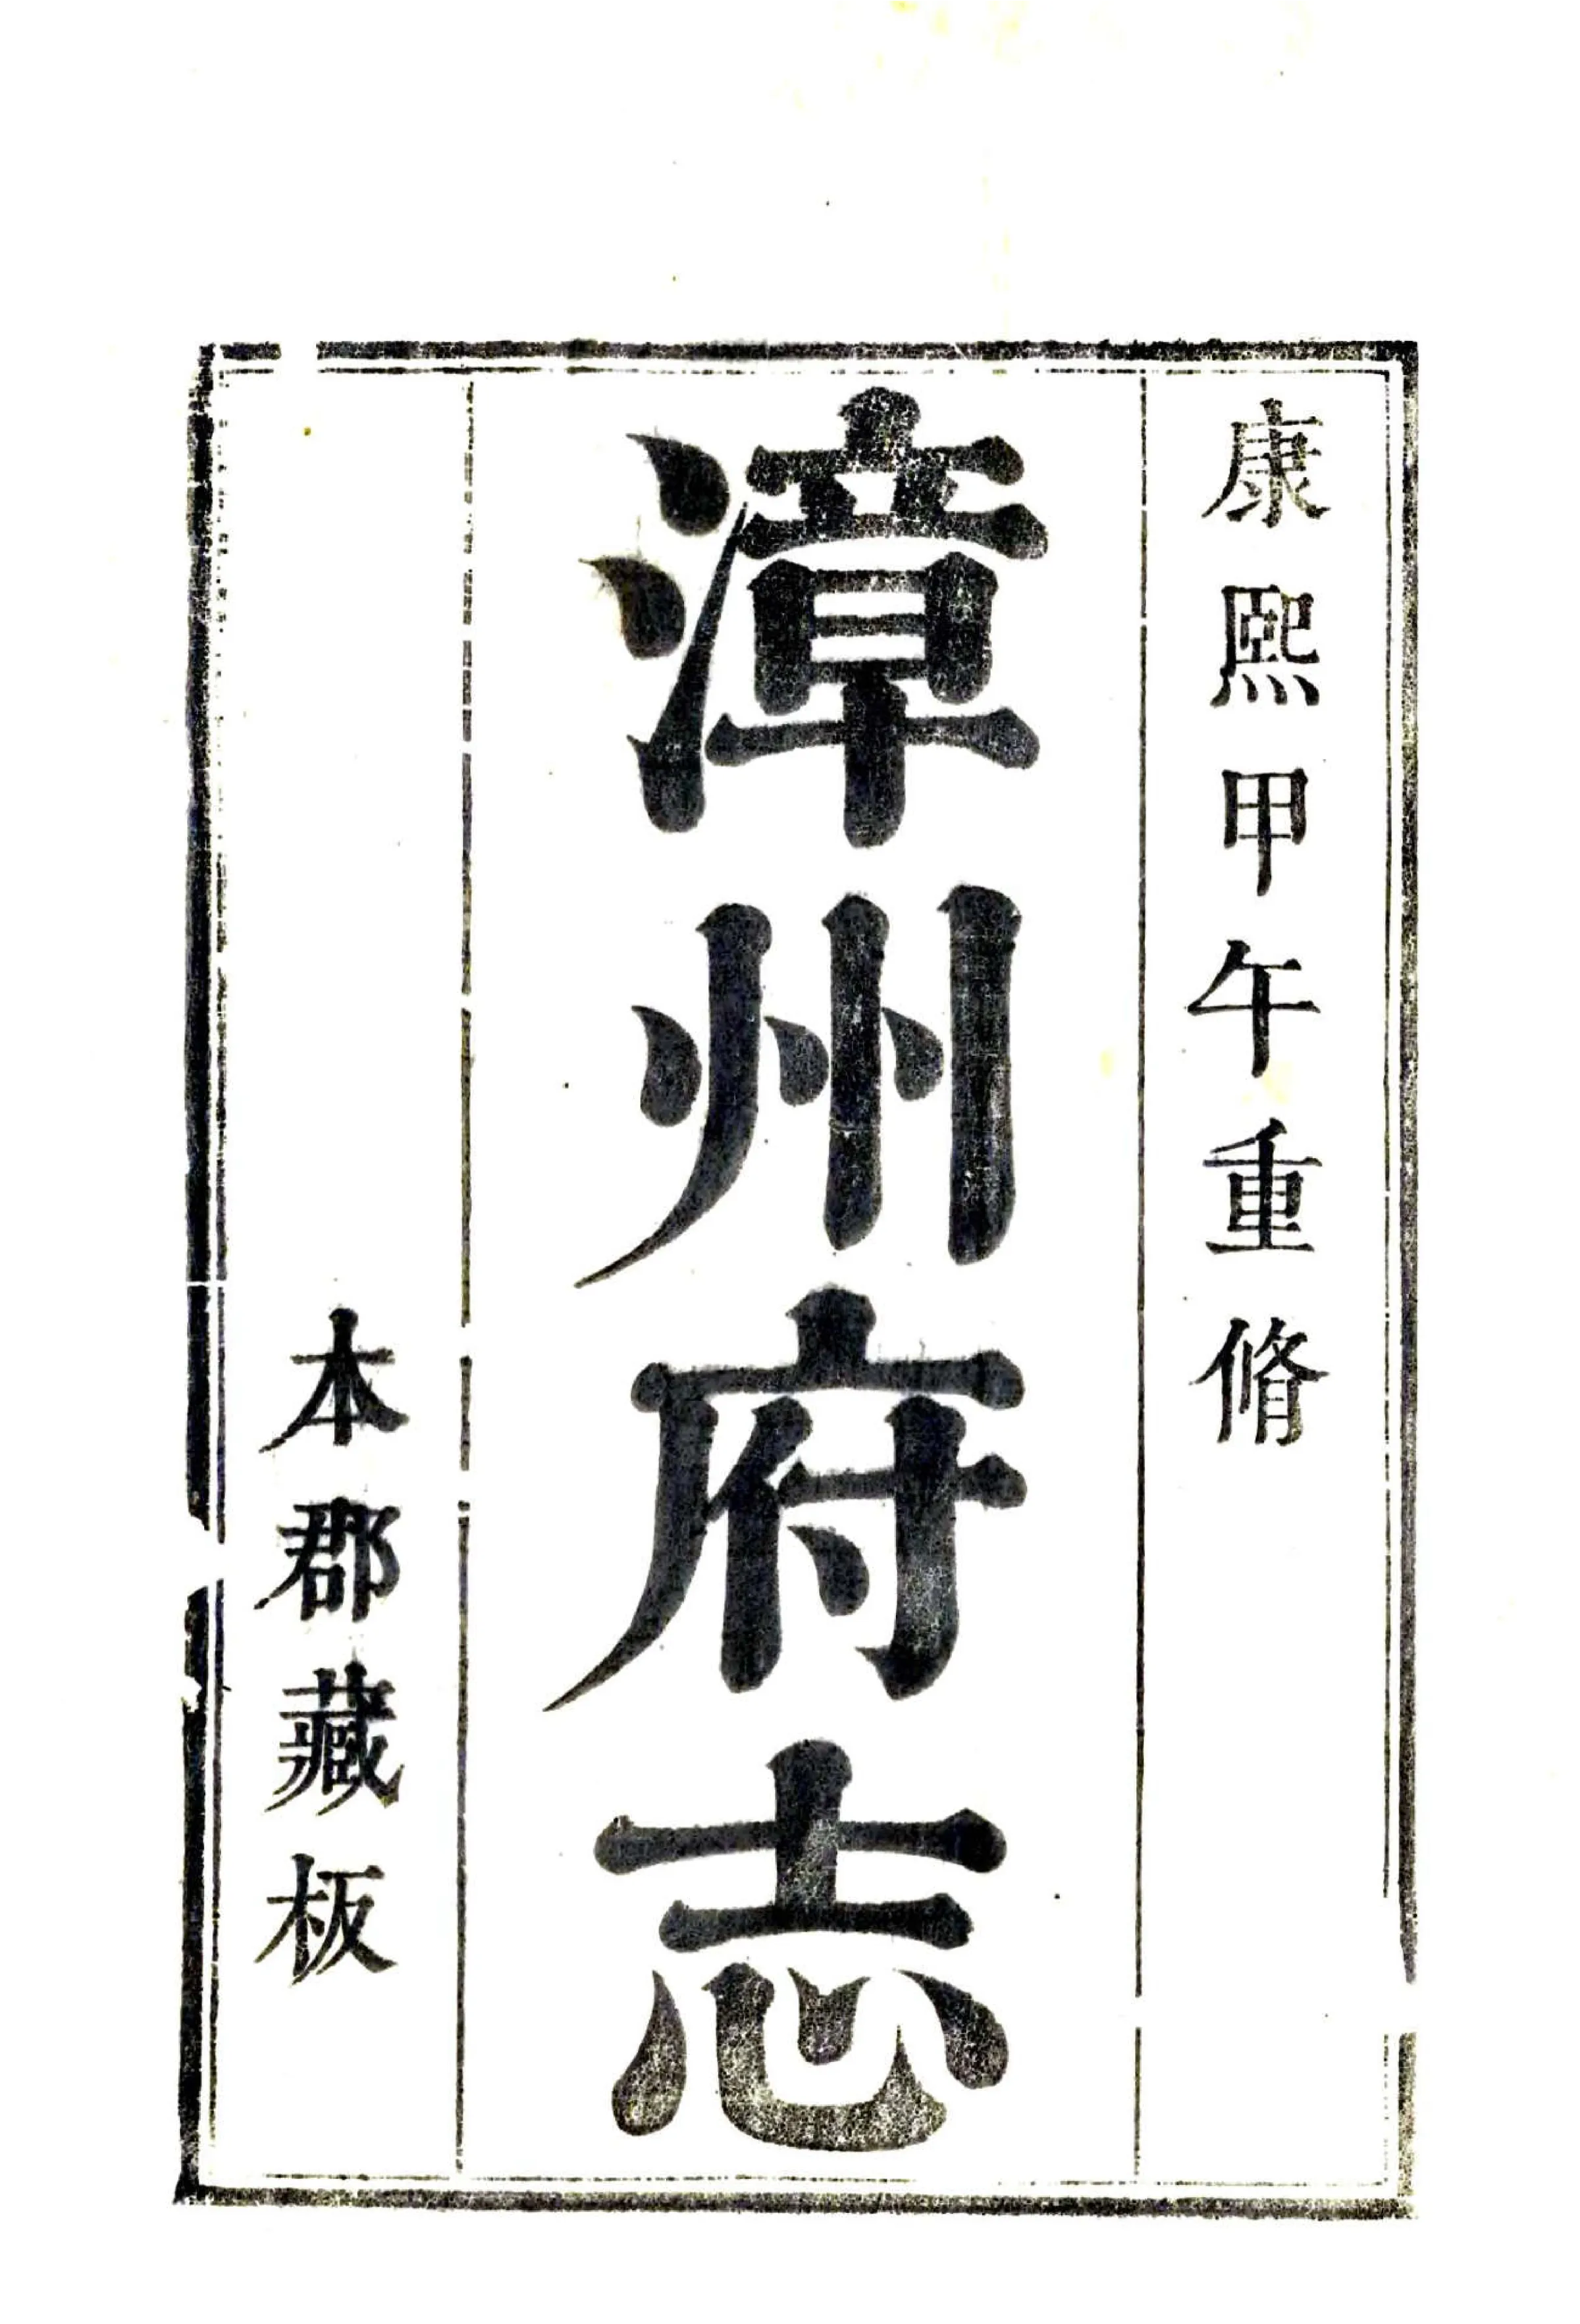 康熙甲午重脩
漳州府志
本郡藏板